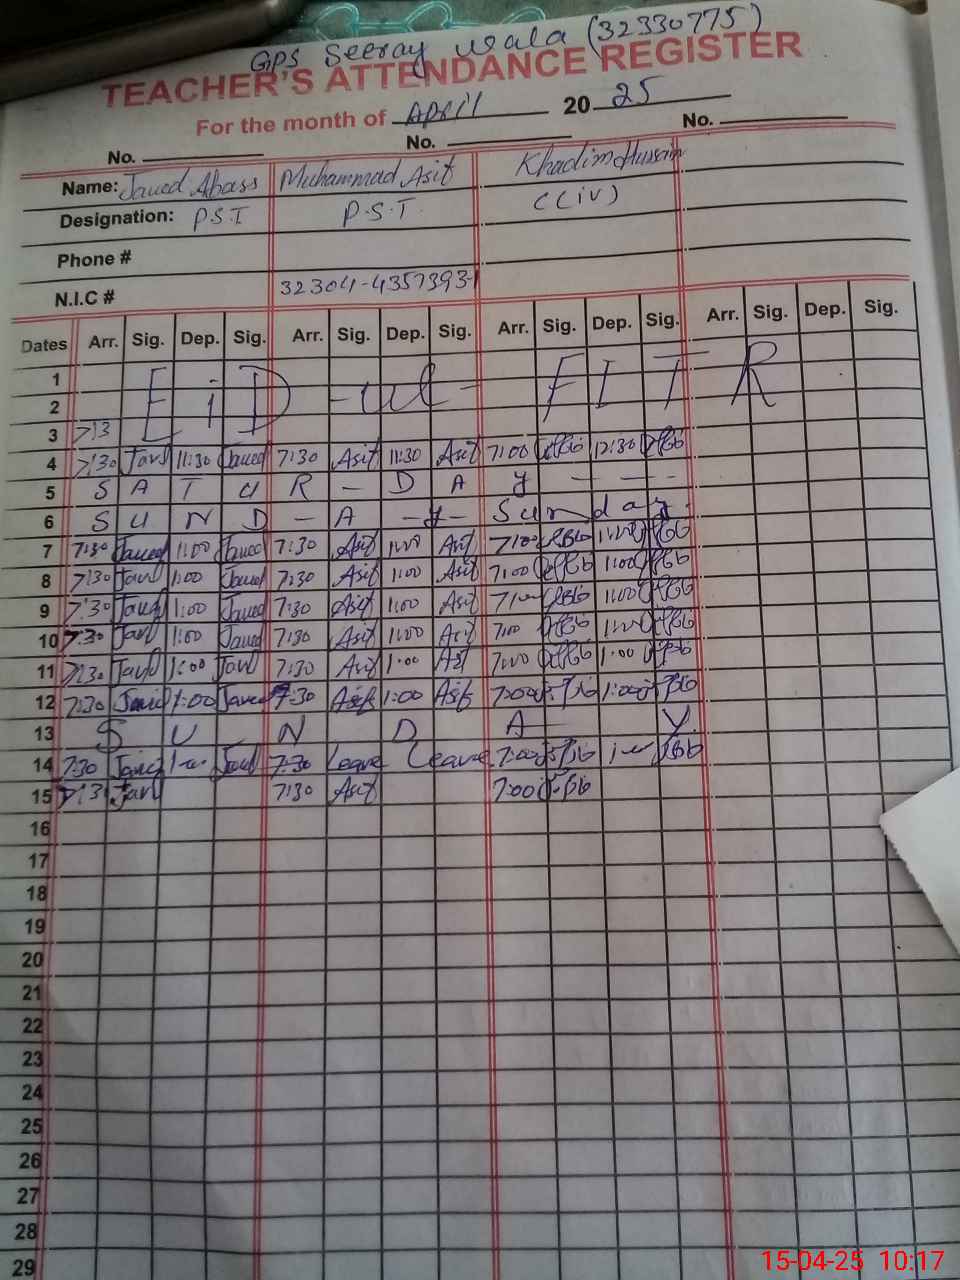 GPS Seeray wala (32330775)
TEACHER'S ATTENDANCE REGISTER
For the month of April 20 25
No. No. No.
Name: Javed Abass Muhammad Asif Khadim Hussain
Designation: P.S.T P.S.T. C(iv)
Phone #
N.I.C # 32304-4357393-1
Dates Arr. Sig. Dep. Sig. Arr. Sig. Dep. Sig. Arr. Sig. Dep. Sig. Arr. Sig. Dep. Sig.
1 EiD - ul - FITR
2
3 7:3
4 7:30 Javed 11:30 Javed 7:30 Asif 11:30 Asif 7:00 12:30
5 S A T U R - D A y - - -
6 S U N D - A - y - Sunday.
7 7:30 Javed 1:00 Javed 7:30 Asif 1:00 Asif 7:00 1:00
8 7:30 Javed 1:00 Javed 7:30 Asif 1:00 Asif 7:00 1:00
9 7:30 Javed 1:00 Javed 7:30 Asif 1:00 Asif 7:00 1:00
10 7:30 Javed 1:00 Javed 7:30 Asif 1:00 Asif 7:00 1:00
11 7:30 Javed 1:00 Javed 7:30 Asif 1:00 Asif 7:00 1:00
12 7:30 Javed 1:00 Javed 7:30 Asif 1:00 Asif 7:00 1:00
13 S U N D A Y
14 7:30 Javed 1:00 Javed 7:30 Leave Leave 7:00 1:00
15 7:3 Javed 7:30 Asif 7:00
16
17
18
19
20
21
22
23
24
25
26
27
28
29
15-04-25 10:17